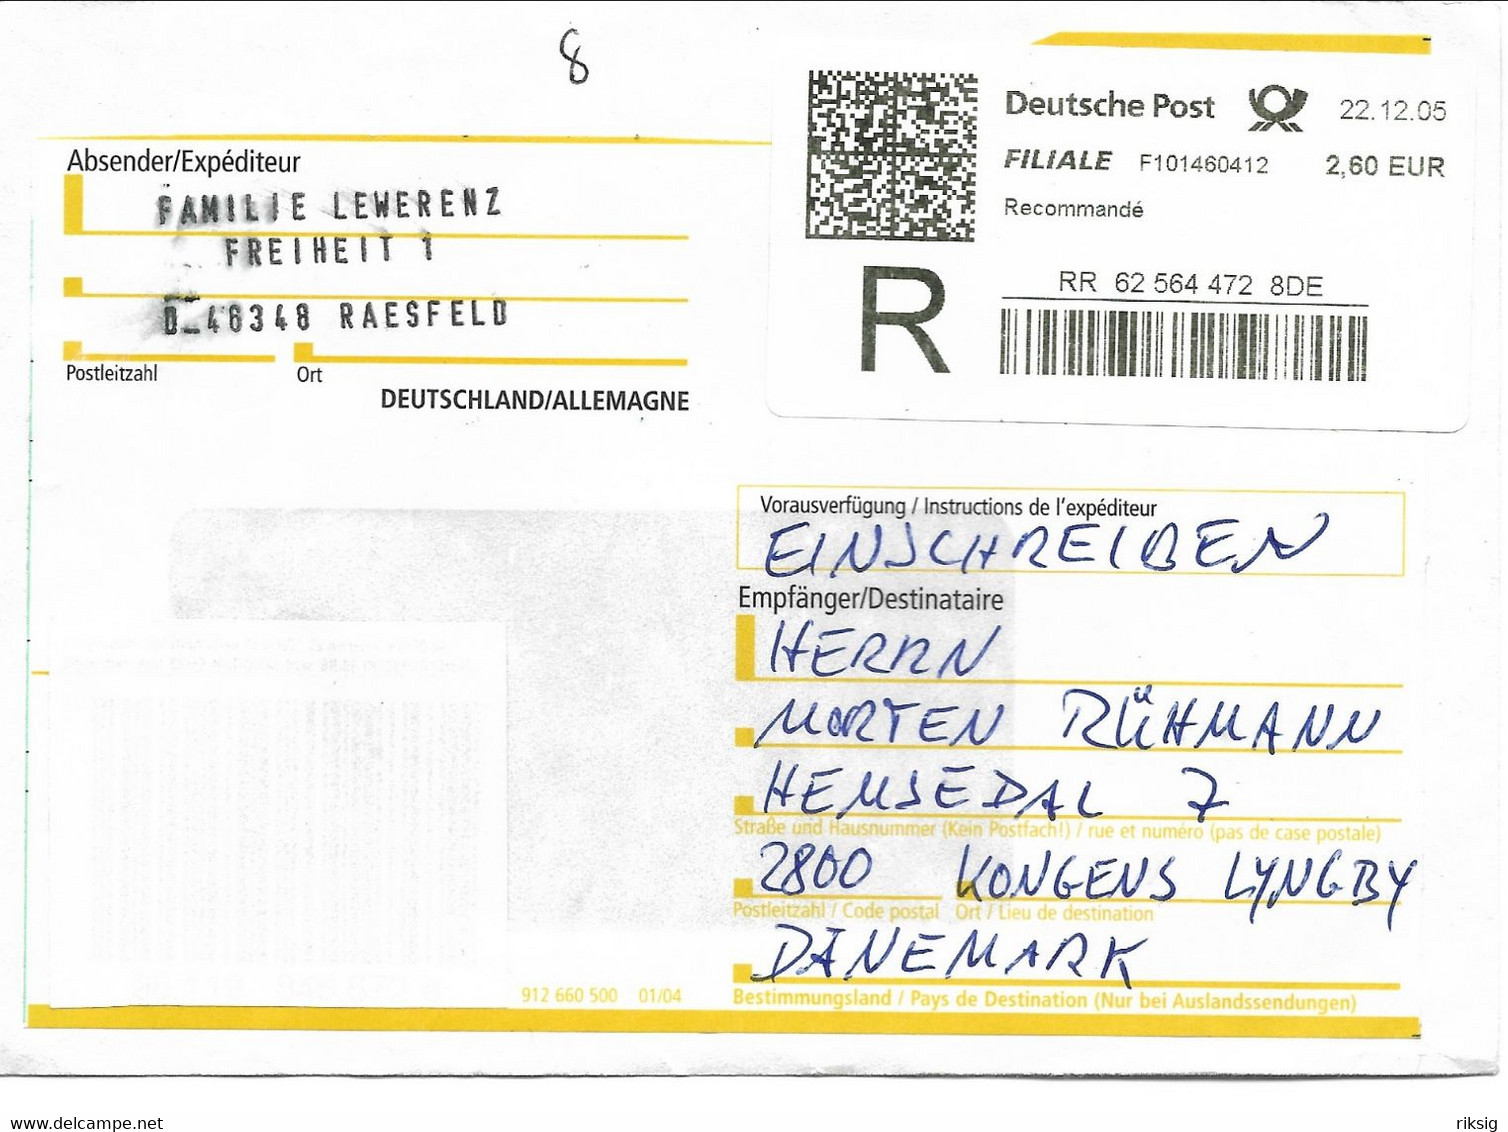 8
Deutsche Post 22.12.05
FILIALE F101460412 2,60 EUR
Recommandé
RR 62 564 472 8DE
R
Absender/Expéditeur
FAMILIE LEWERENZ
FREIHEIT 1
D-46348 RAESFELD
Postleitzahl Ort
DEUTSCHLAND/ALLEMAGNE
Vorausverfügung / Instructions de l'expéditeur
EINSCHREIBEN
Empfänger/Destinataire
HERRN
MORTEN RÜHMANN
HEMSEDAL 7
Straße und Hausnummer (Kein Postfach!) / rue et numéro (pas de case postale)
2800 KONGENS LYNGBY
Postleitzahl / Code postal Ort / Lieu de destination
DÄNEMARK
912 660 500 01/04
Bestimmungsland / Pays de Destination (Nur bei Auslandssendungen)
www.delcampe.net
riksig